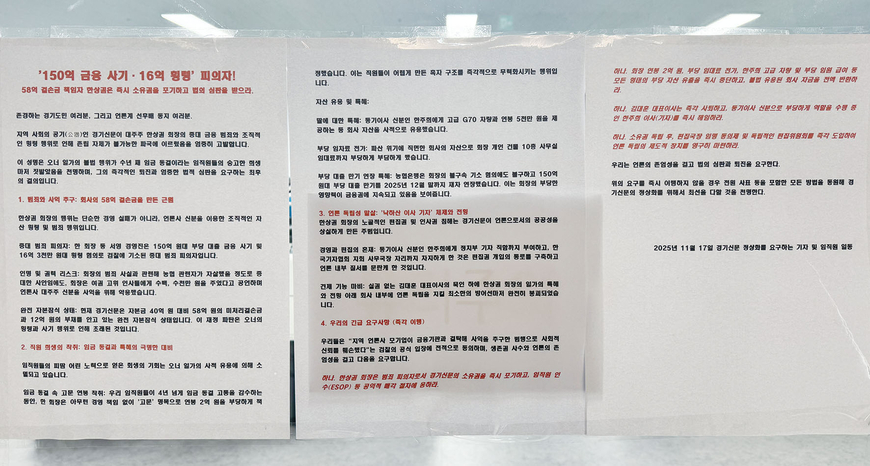 '150억 금융 사기·16억 횡령' 피의자!
58억 결손금 책임자 한상권은 즉시 소유권을 포기하고 법의 심판을 받으라.
존경하는 경기도민 여러분, 그리고 언론계 선후배 동지 여러분.
지역 사회의 공기(公器)인 경기신문이 대주주 한상권 회장의 중대 금융 범죄와 조직적
인 횡령 행위로 인해 존립 자체가 불가능한 파국에 이르렀음을 엄중히 고발합니다.
이 성명은 오너 일가의 불법 행위가 수년 째 임금 동결이라는 임직원들의 숭고한 희생
마저 짓밟았음을 천명하며, 그의 즉각적인 퇴진과 엄중한 법적 심판을 요구하는 최후
의 결의입니다.
1. 범죄와 사익 추구: 회사의 58억 결손금을 만든 근원
한상권 회장의 행위는 단순한 경영 실패가 아니라, 언론사 신문을 이용한 조직적인 자
산 횡령 및 범죄 행위입니다.
중대 범죄 피의자: 한 회장 등 서영 경영진은 150억 원대 부당 대출 금융 사기 및
16억 3천만 원대 횡령 혐의로 검찰에 기소된 중대 범죄 피의자입니다.
인명 및 권력 리스크: 회장의 범죄 사실과 관련해 농협 관련자가 자살했을 정도로 중
대한 사안임에도, 회장은 여권 고위 인사들에게 수백, 수천만 원을 주었다고 공언하며
언론사 대주주 신분을 사익을 위해 악용했습니다.
완전 자본잠식 상태: 현재 경기신문은 자본금 40억 원 대비 58억 원의 미처리결손금
과 12억 원의 부채를 안고 있는 완전 자본잠식 상태입니다. 이 재정 파탄은 오너의
횡령과 사기 행위로 인해 초래된 것입니다.
2. 직원 희생의 착취: 임금 동결과 특혜의 극명한 대비
임직원들의 피땀 어린 노력으로 얻은 회생의 기회는 오너 일가의 사적 유용에 의해 소
멸되고 있습니다.
임금 동결 속 고문 연봉 착취: 우리 임직원들이 4년 넘게 임금 동결 고통을 감수하는
동안, 한 회장은 아무런 경영 책임 없이 '고문' 명목으로 연봉 2억 원을 부당하게 책
정했습니다. 이는 직원들이 어렵게 만든 흑자 구조를 즉각적으로 무력화시키는 행위입
니다.
자산 유용 및 특혜:
딸에 대한 특혜: 등기이사 신분인 한주희에게 고급 G70 차량과 연봉 5천만 원을 제
공하는 등 회사 자산을 사적으로 유용했습니다.
부당 임차료 전가: 파산 위기에 직면한 회사의 자산으로 회장 개인 건물 10층 사무실
임대료까지 부당하게 부담하게 했습니다.
부당 대출 만기 연장 특혜: 농협은행은 회장의 불구속 기소 혐의에도 불구하고 150억
원대 부당 대출 만기를 2025년 12월 말까지 재차 연장했습니다. 이는 회장의 부당한
영향력이 금융권에 지속되고 있음을 보여줍니다.
3. 언론 독립성 말살: '낙하산 이사 기자' 체제와 전횡
한상권 회장의 노골적인 편집권 및 인사권 침해는 경기신문이 언론으로서의 공공성을
상실하게 만든 주범입니다.
경영과 편집의 혼재: 등기이사 신분인 한주희에게 정치부 기자 직함까지 부여하고, 한
국기자협회 지회 사무국장 자리까지 차지하게 한 것은 편집권 개입의 통로를 구축하고
언론 내부 질서를 문란케 한 것입니다.
견제 기능 마비: 실권 없는 김대훈 대표이사의 묵인 하에 한상권 회장의 일가의 특혜
와 전횡 아래 회사 내부에 언론 독립을 지킬 최소한의 방어선마저 완전히 붕괴되었습
니다.
4. 우리의 긴급 요구사항 (즉각 이행)
우리들은 "지역 언론사 모기업이 금융기관과 결탁해 사익을 추구한 범행으로 사회적
신뢰를 훼손했다"는 검찰의 공식 입장에 전적으로 동의하며, 생존권 사수와 언론의 존
엄성을 걸고 다음을 요구합니다.
하나. 한상권 회장은 범죄 피의자로서 경기신문의 소유권을 즉시 포기하고, 임직원 인
수(ESOP) 등 공익적 매각 절차에 응하라.
하나. 회장 연봉 2억 원, 부당 임대료 전가, 한주희 고급 차량 및 부당 임원 급여 등
모든 형태의 부당 자산 유출을 즉시 중단하고, 불법 유용된 회사 자금을 전액 반환하
라.
하나. 김대훈 대표이사는 즉각 사퇴하고, 등기이사 신분으로 부당하게 역할을 수행 중
인 한주희 이사(기자)를 즉시 해임하라.
하나. 소유권 독립 후, 편집국장 임명 동의제 및 독립적인 편집위원회를 즉각 도입하여
언론 독립의 제도적 장치를 영구히 마련하라.
우리는 언론의 존엄성을 걸고 법의 심판과 퇴진을 요구한다.
위의 요구를 즉시 이행하지 않을 경우 전원 사표 등을 포함한 모든 방법을 동원해 경
기신문의 정상화를 위해서 최선을 다할 것을 천명한다.
2025년 11월 17일 경기신문 정상화를 요구하는 기자 및 임직원 일동